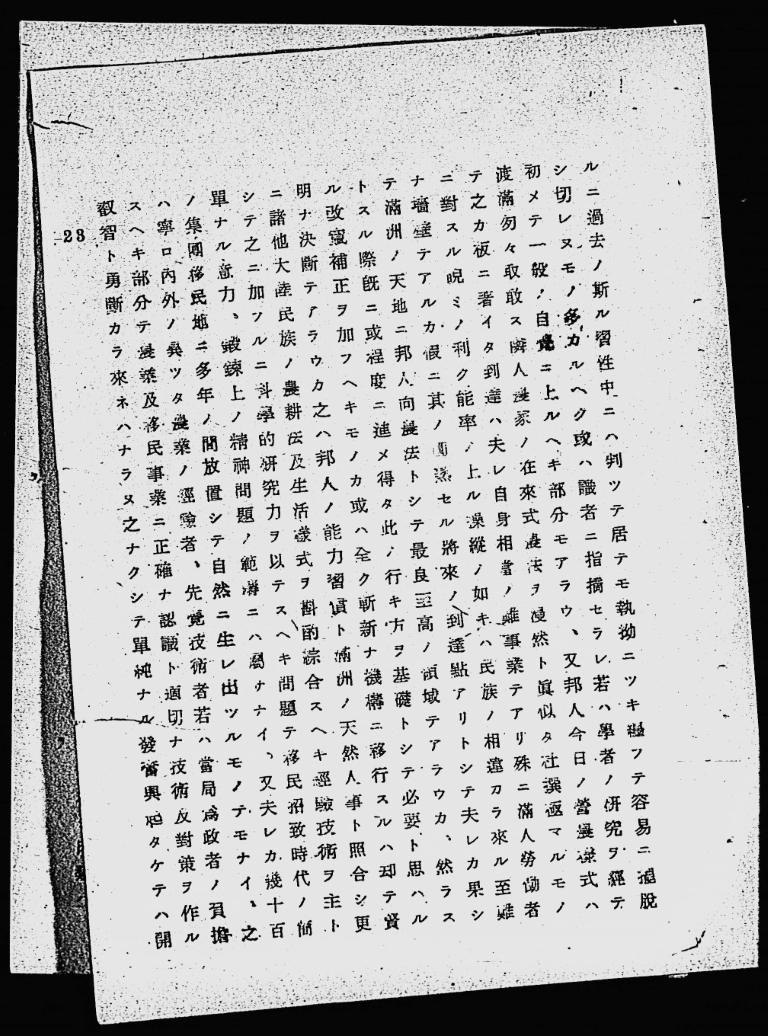 ルニ過去ノ斯ル習性中ニハ判ツテ居テモ執拗ニツキ纒フテ容易ニ擺脱
シ切レヌモノ多カルヘク或ハ識者ニ指摘セラレ若ハ學者ノ硏究ヲ經テ
初メテ一般ノ自覺ニ上ルヘキ部分モアラウ、又邦人今日ノ營農樣式ハ
渡滿勿々取敢ス隣人農家ノ在來式農法ヲ漫然ト眞似タ杜撰極マルモノ
テ之カ板ニ著イタ到達ハ夫レ自身相當ノ難事業テアリ殊ニ滿人勞働者
ニ對スル睨ミノ利ク能率ノ上ル操縱ノ如キハ民族ノ相違カラ來ル至難
ナ墻壁テアルカ假ニ其ノ圓熟セル將來ノ到達點アリトシテ夫レカ果シ
テ滿洲ノ天地ニ邦人向農法トシテ最良至高ノ領域テアラウカ、然ラス
トスル際旣ニ或程度ニ進メ得タ此ノ行キ方ヲ基礎トシテ必要ト思ハル
ル改竄補正ヲ加フヘキモノカ或ハ全ク斬新ナ機構ニ移行スルハ却テ賢
明ナ決斷テアラウカ之ハ邦人ノ能力習慣ト滿洲ノ天然人事ト照合シ更
ニ諸他大陸民族ノ農耕法及生活樣式ヲ斟酌綜合スヘキ經驗技術ヲ主ト
シテ之ニ加フルニ科學的硏究力ヲ以テスヘキ問題テ移民招致時代ノ簡
單ナル意力、鍛鍊上ノ精神問題ノ範疇ニハ屬サナイ、又夫レカ幾十百
ノ集團移民地ニ多年ノ間放置シテ自然ニ生レ出ツルモノテモナイ、之
ハ寧ロ內外ノ異ツタ農業ノ經驗者、先覺技術者若ハ當局爲政者ノ負擔
スヘキ部分テ農業及移民事業ニ正確ナ認識ト適切ナ技術反對策ヲ作ル
叡智ト勇斷カラ來ネハナラヌ之ナクシテ單純ナル發奮興起タケテハ開
23